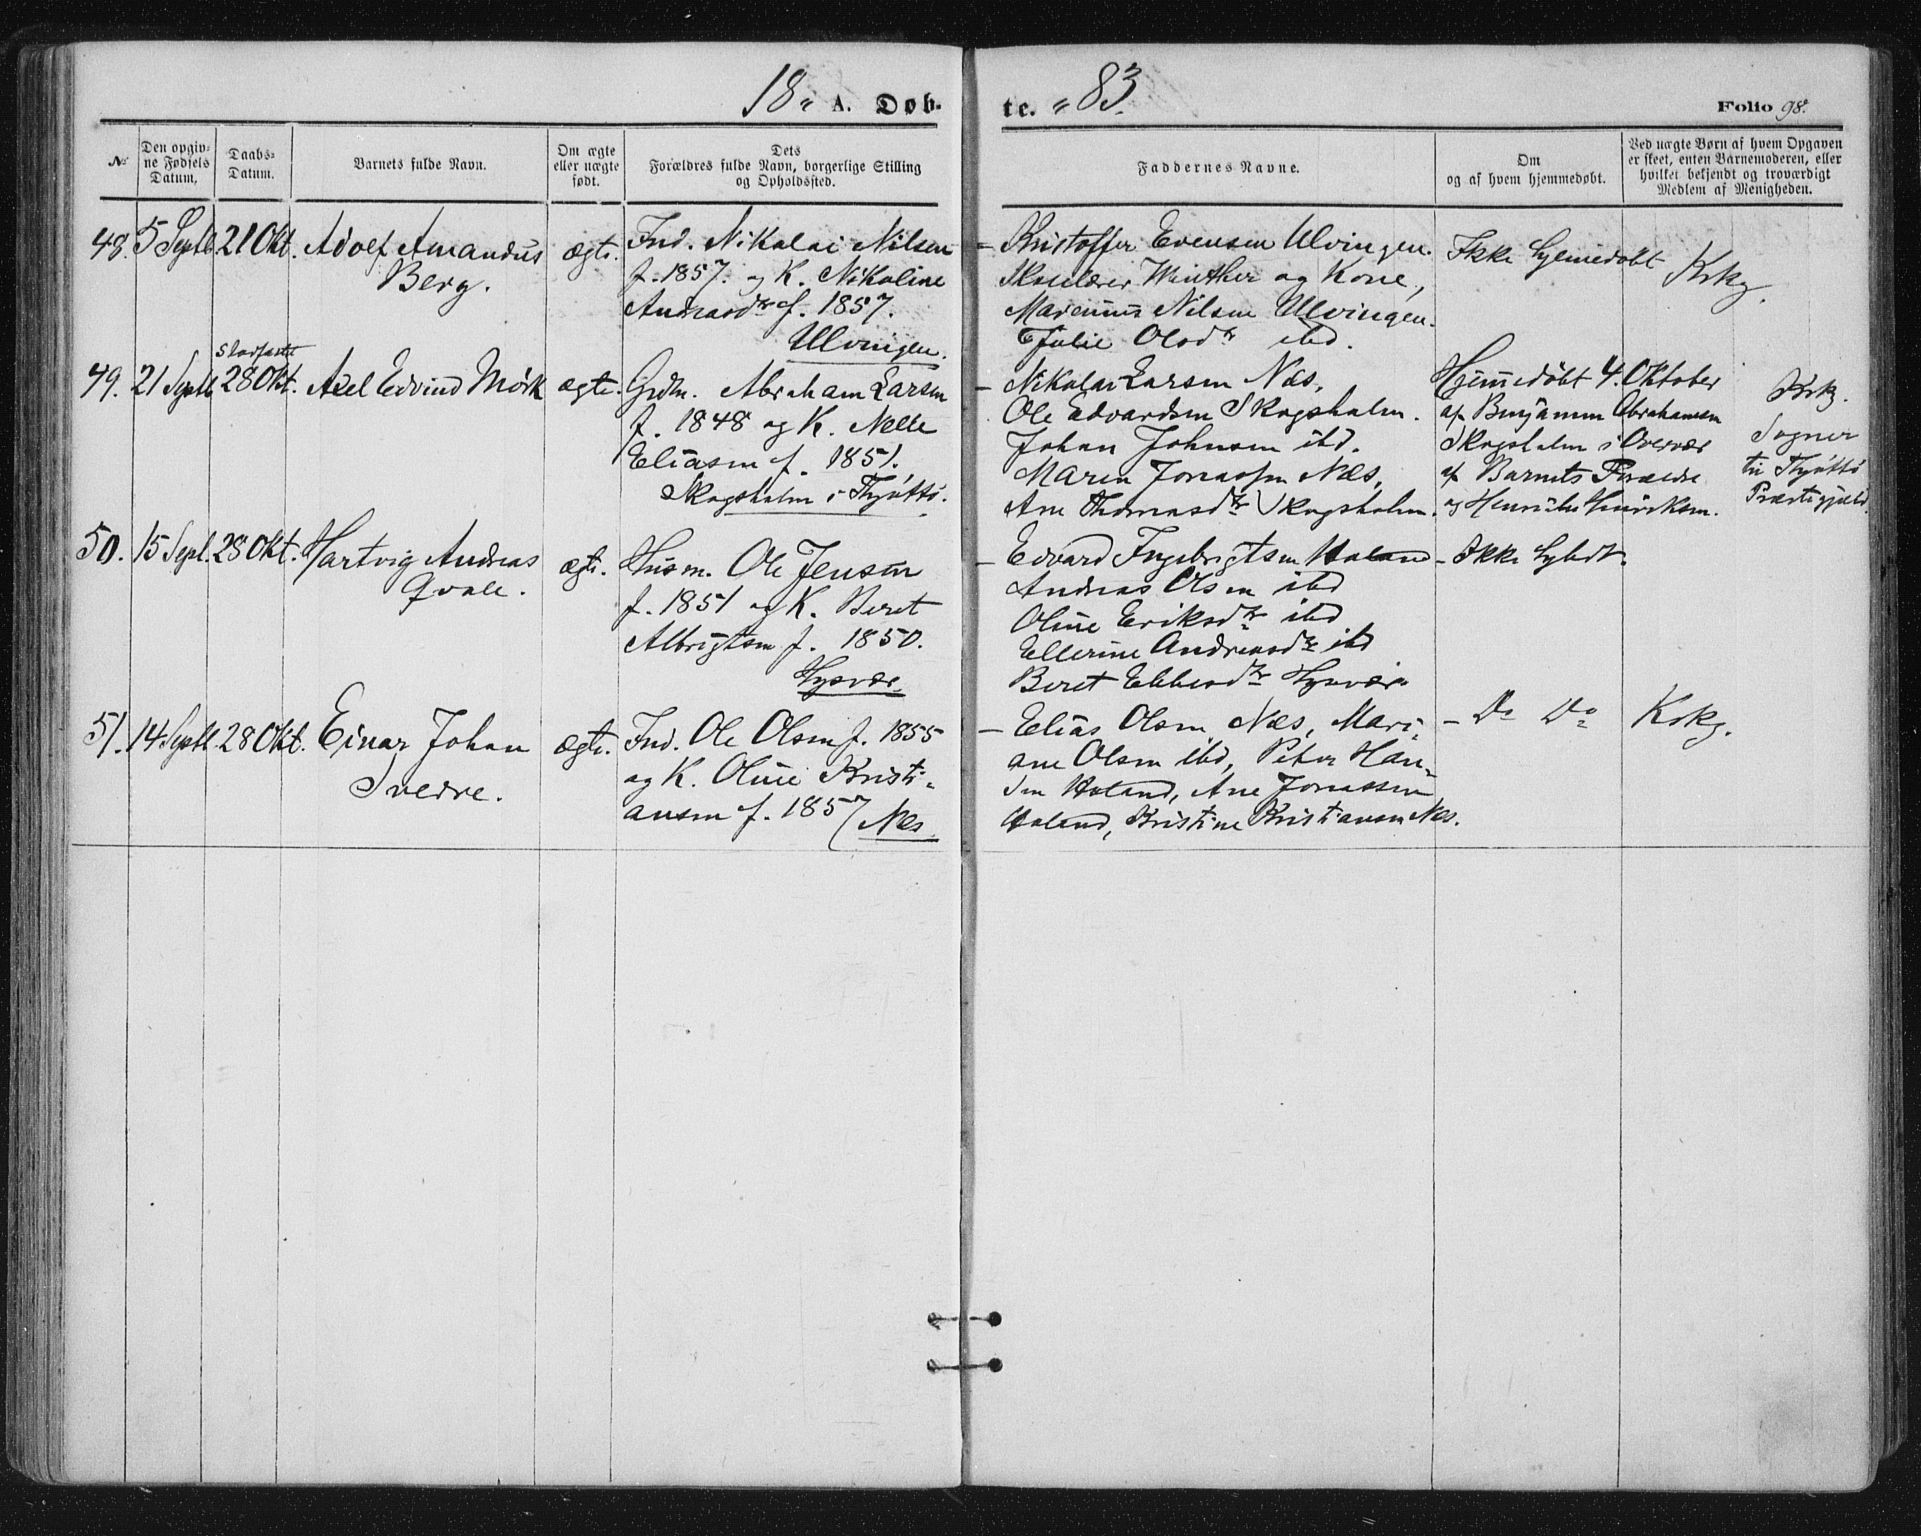 18" A. Døb-
te. "83.
Folio 98.
№
Den opgiv-
ne Fødsels
Datum.
Daabs-
Datum.
Barnets fulde Navn.
Om ægte
eller uægte
født.
Dets
Forældres fulde Navn, borgerlige Stilling
og Opholdssted.
Faddernes Navne.
Om
og af hvem hjemmedøbt.
Ved uægte Børn af hvem Opgaven
er skeet, enten Barnemoderen, eller
hvilket bekjendt og troværdigt
Medlem af Menigheden.
48. 5 Septb 21 Okt. Adolf Amandus
Berg.
ægte.
Ind. Nikolai Nilsen
f. 1857. og K. Nikoline
Andreasdtr f. 1857.
Ulvingen.
- Kristoffer Evensen Ulvingen.
Skolelærer Winther og Kone,
Marenius Nilsen Ulvingen.
Julie Olsdtr ibd.
Ikke hjemmedøbt
Krkg.
49. 21 Septb
28 Okt. Axel Edvind Mörk
ægte.
Grdm. Abraham Larsen
f. 1848 og K. Nelle
Eliasen f. 1851.
Skogsholm i Thjøttö.
- Nikolai Larsen Næs,
Ole Edvardsen Skogsholm.
Johan Johnsen ibd.
Maren Jonassen Næs,
Ane Thomasdtr Skogsholm.
Hjemmedöbt 4. Oktober
af Benjamin Abrahamsen
Skogsholm i Overvær
af Barnets Forældre
og Henrik Henriksen.
Krkg.
Sogner
til Thjöttö
Præstegjæld.
50. 15 Sept. 28 Okt. Hartvig Andreas
Qvale.
ægte.
Husm. Ole Jensen
f. 1851 og K. Beret
Albrigtsen f. 1850.
Hysvær.
- Edvard Ingebrigtsen Holand
Andreas Olsen ibd
Oline Eriksdtr ibd
Ellerine Andreasdtr ibd
Beret Ebbesdtr Hysvær
- Ikke hjbdt.
51. 14 Septb. 28 Okt. Einar Johan
Sverre.
ægte.
Ind. Ole Olsen f. 1855
og K. Oline Kristi-
ansen f. 1857 / Næs
- Elias Olsen Næs, Mari-
ane Olsen ibd, Peter Han-
sen Holand, Ane Jonassen
Holand, Kristine Kristiansen Næs.
- Do Do
Krkg.